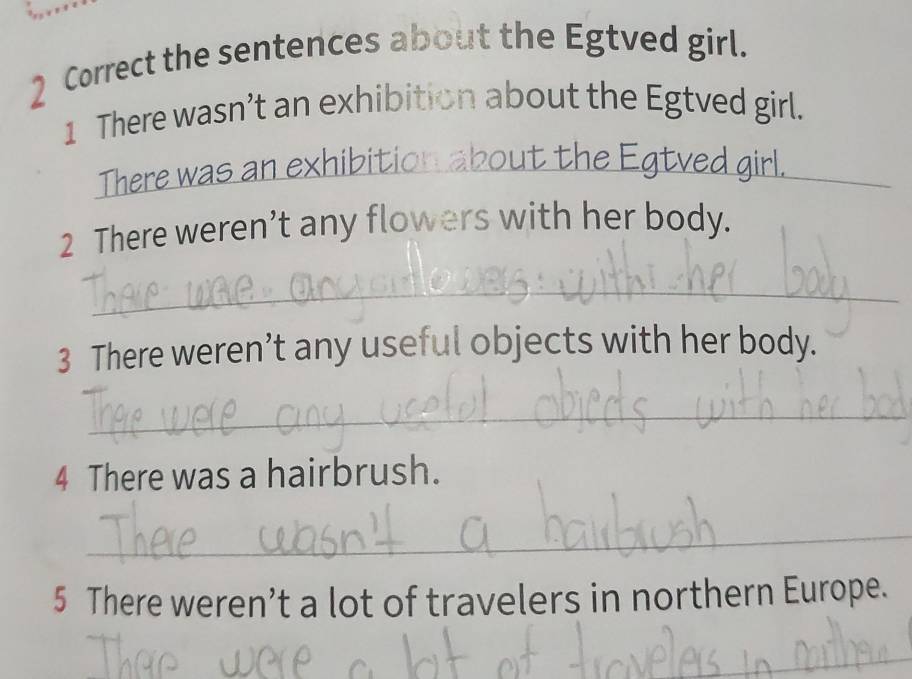 2 Correct the sentences about the Egtved girl.
1 There wasn't an exhibition about the Egtved girl.
There was an exhibition about the Egtved girl.
2 There weren't any flowers with her body.
There were any flowers with her body
3 There weren't any useful objects with her body.
There were any useful objects with her body
4 There was a hairbrush.
There wasn't a hairbrush
5 There weren't a lot of travelers in northern Europe.
There were a lot of travelers in northern